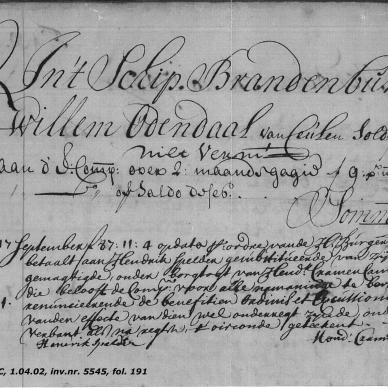 In't Schip Brandenbu
Willem Odendaal van Ceulen Sold
niet verm
aan d' E: Comp: over 2: maands gagie f 9
of saldo deses
Somma
17 September f 87:11:4 op dato p:r ordre vande H:rn Burgem
betaalt aan Hendrik Spelder gesubstitueerde van zijn
gemagtigde, onder borgtogt van Hend: Cramer
die belooft de Comp: voor alle namaninge te
renuncieerende de benefitien Ordinis et Excussionis
vanden effecte van dien wel onderregt zijnde,
Verbant als na regte, t' oirconde geteekent.
Henrik Spelder Hend: Cram
C, 1.04.02, inv.nr. 5545, fol. 191